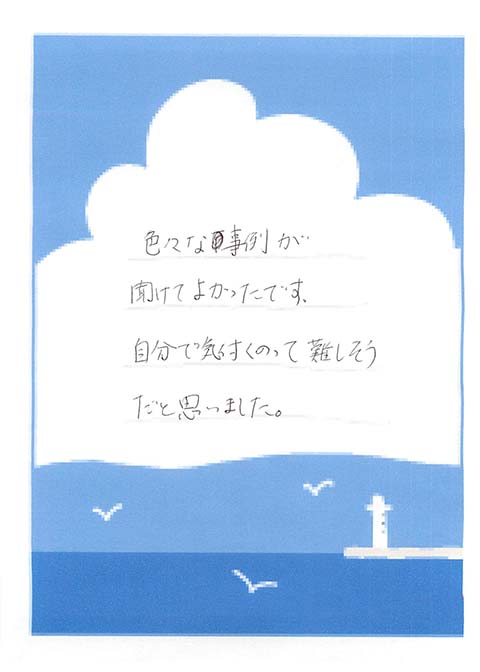 色々な事例が
聞けてよかったです、
自分で気付くのって難しそう
だと思いました。